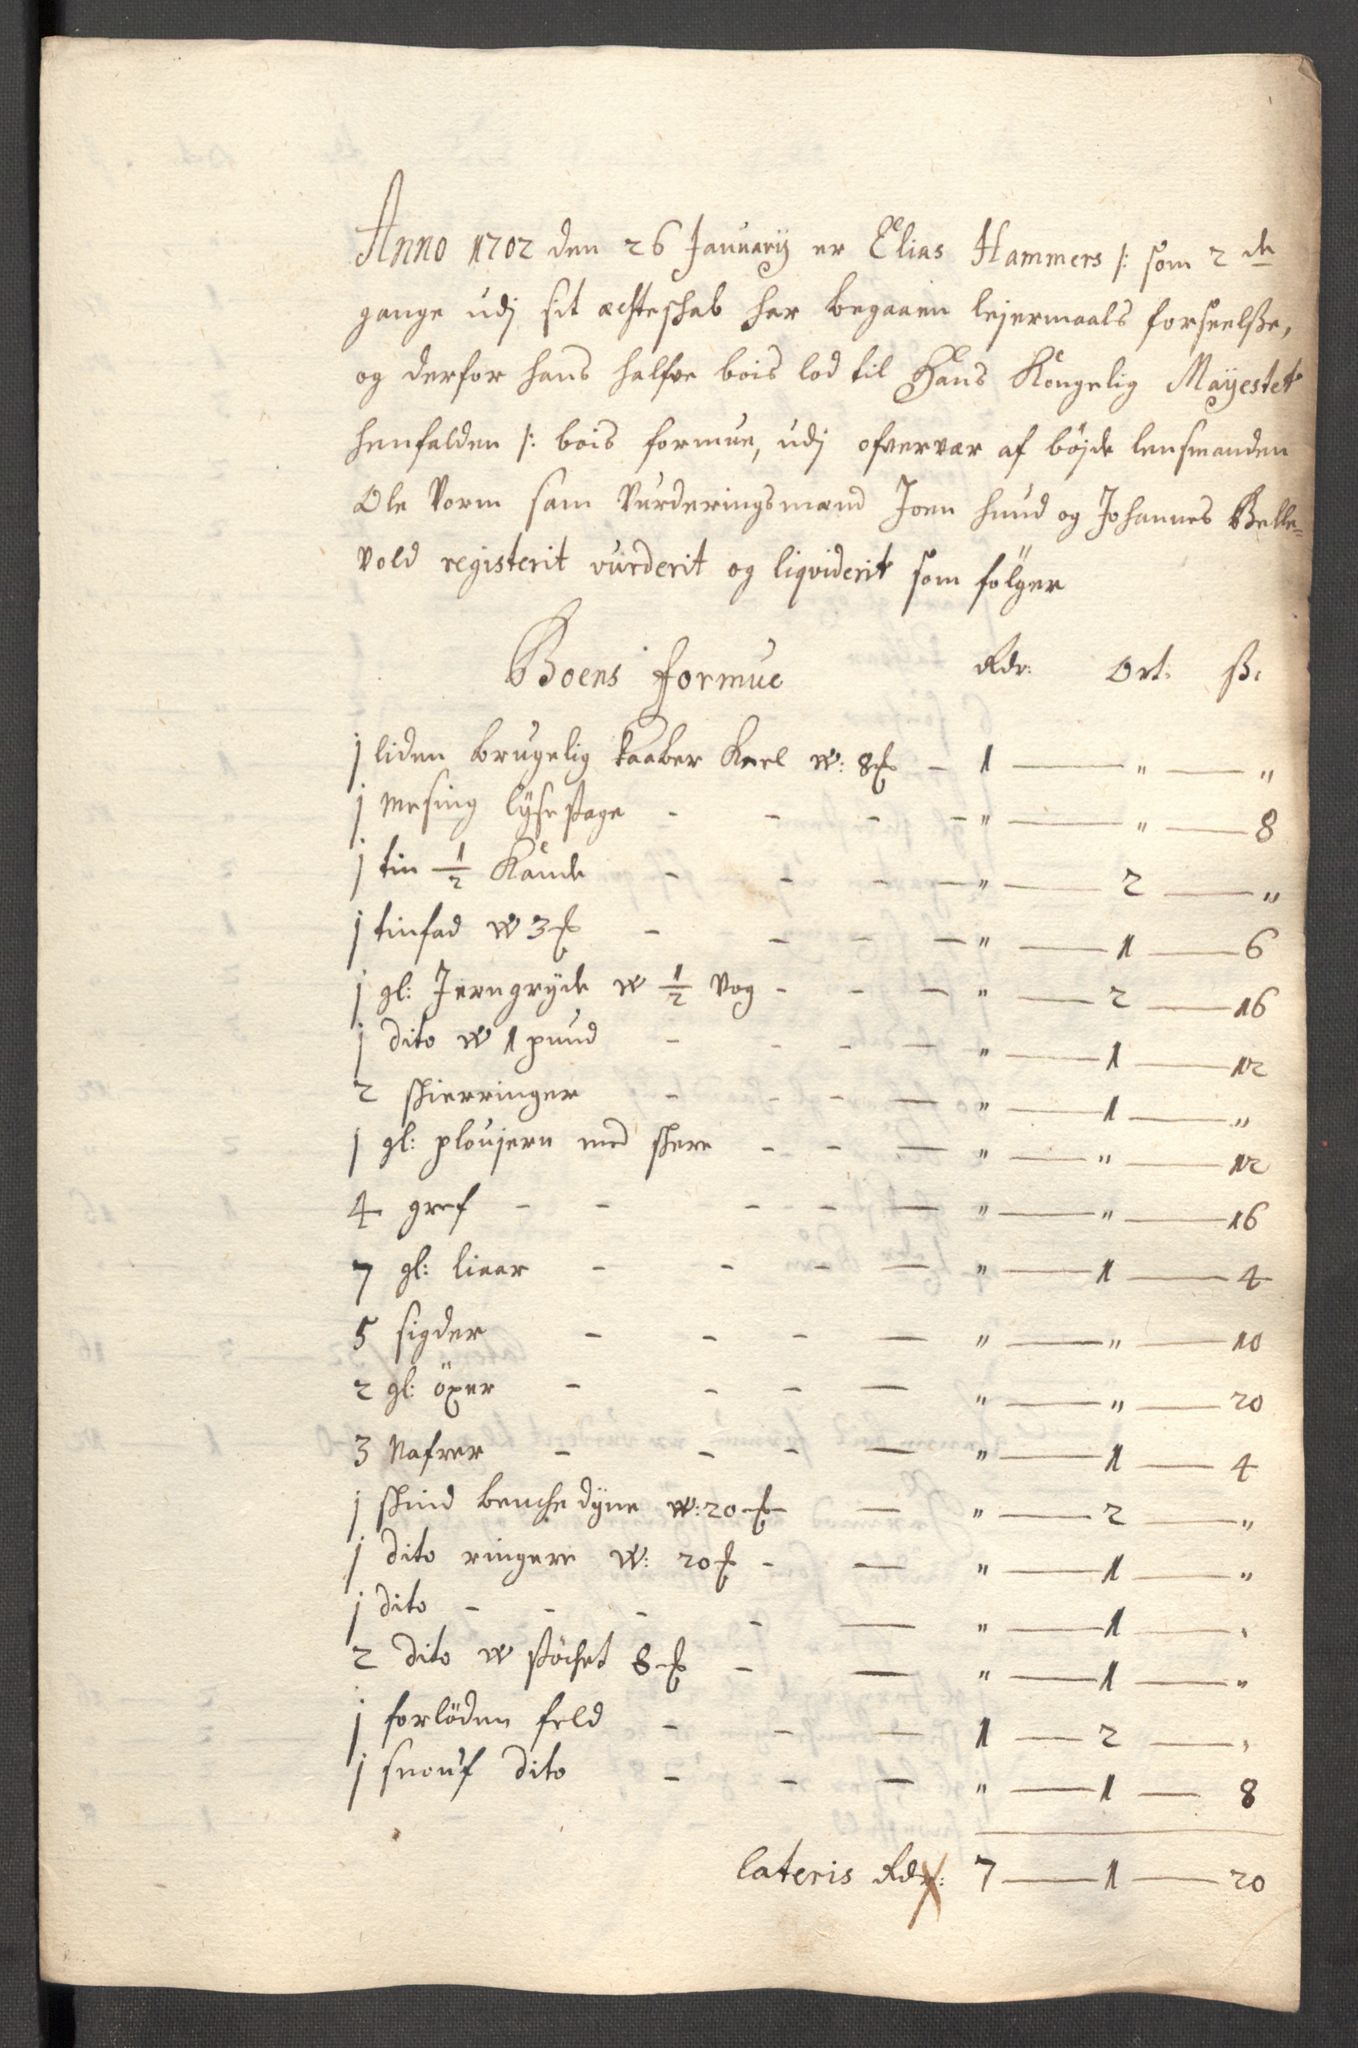 Anno 1702 den 26 Januarij er Elias Hammers /: som 2de
gange udj sit ægteskab har begaaen lejermaals forseelße,
og derfor hans halfve bois lod til Hans Kongelig Mayestet
henfalden /: bois formue, udj ofvervær af böjde lensmanden
Ole Vorm sam Vurderingsmænd Joen hund og Johannes Belle=
vold registerit vurderit og liqviderit som fölger
Boens formue Rdr: Ort: ß:
1 liden brugelig kaaber Keel w: 8 ℔ - 1 — " — "
1 Mesing lÿsestage - - - - " — " — 8
1 tin ½ Kande - - - - " — 2 — "
1 tinfad w 3 ℔ - - - - " — 1 — 6
1 gl: Jerngrÿde w ½ Vog - - - " — 2 — 16
1 dito w 1 pund - - - - " — 1 — 12
2 skierringer - - - - " — 1 — "
1 gl: ploujern med skere - - - " — " — 12
4 gref - - - - - " — " — 16
7 gl: liaar - - - - " — 1 — 4
5 sigder - - - - " — " — 10
2 gl: öxer - - - - " — " — 20
3 Nafrer - - - - " — 1 — 4
1 skind benche dÿne w: 20 ℔ - — " — 2 — "
1 dito ringere w: 20 ℔ - — " — 1 — "
1 dito - - - - — " — 1 — "
2 dito w støchet 8 ℔ - — " — 1 — "
1 forlöden feld - - — 1 — 2 — "
1 snouf dito - - — " — 1 — 8
Lateris Rdr: 7 — 1 — 20